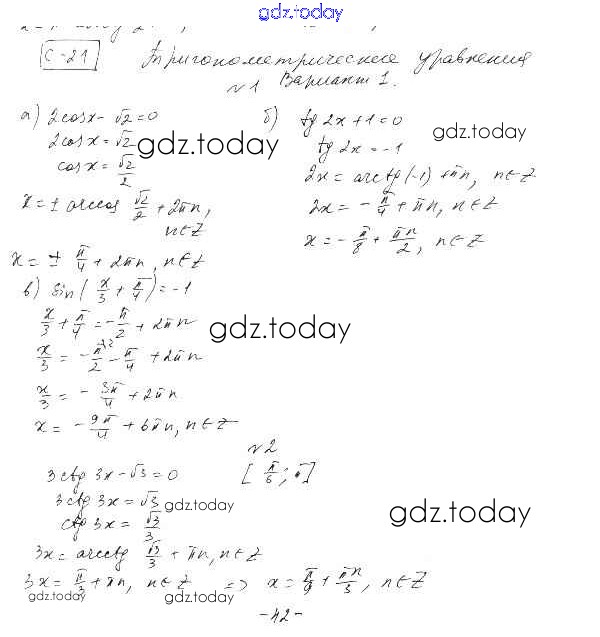 gdz.today
С-21 Тригонометрические уравнения
№1 Вариант 1.
а) 2cosx - √2 = 0
2cosx = √2
cosx = √2/2
x = ± arccos √2/2 + 2πn,
n∈Z
x = ± π/4 + 2πn, n∈Z
б) tg 2x + 1 = 0
tg 2x = -1
2x = arctg(-1) + πn, n∈Z
2x = -π/4 + πn, n∈Z
x = -π/8 + πn/2, n∈Z
в) sin(x/3 + π/4) = -1
x/3 + π/4 = -π/2 + 2πn
x/3 = -π/2 - π/4 + 2πn
x/3 = -3π/4 + 2πn
x = -9π/4 + 6πn, n∈Z
№2
3ctg 3x - √3 = 0 [π/6; π]
3ctg 3x = √3
ctg 3x = √3/3
3x = arcctg √3/3 + πn, n∈Z
3x = π/3 + πn, n∈Z => x = π/9 + πn/3, n∈Z
-42-
gdz.today
gdz.today
gdz.today
gdz.today
gdz.today
gdz.today
gdz.today